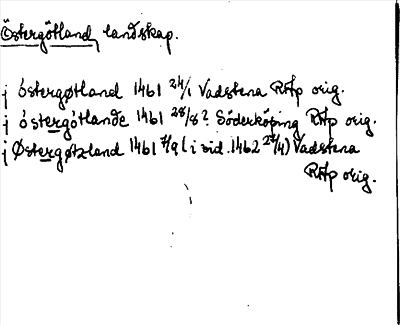 Östergötland, landskap.
j óstergøtland 1461 24/1 Vadstena RAp orig.
j óstergótlande 1461 28/8? Söderköping RAp orig.
j Østergøtzland 1461 7/9 (i vid. 1462 27/4) Vadstena
RAp orig.